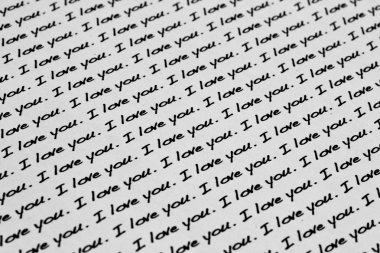 you. I love you.
you. I love you. I love you.
love you. I love you. I love you. I love you.
I love you. I love you. I love you. I love you. I love you.
I love you. I love you. I love you. I love you. I love you.
I love you. I love you. I love you. I love you. I love you.
you. I love you. I love you. I love you. I love you.
you. I love you. I love you. I love you. I love you.
love you. I love you. I love you. I love you. I love you.
I love you. I love you. I love you. I love you.
I love you. I love you. I love you. I love you.
I love you. I love you. I love you.
I love you. I love you.
I love you.